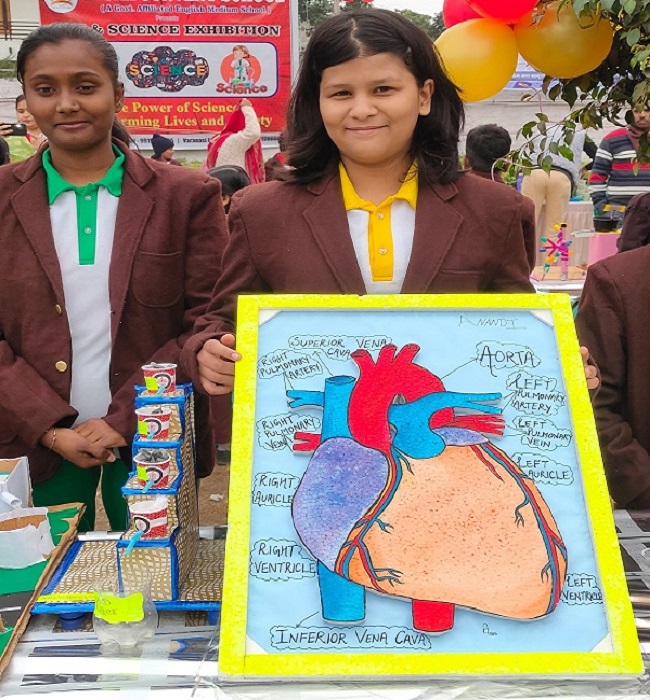 ( A Govt. Affiliated English Medium School )
Presents
& SCIENCE EXHIBITION
SCIENCE
Science
e Power of Science
rming Lives and
Varanasi
ANANDI
SUPERIOR VENA
CAVA
RIGHT
PULMONARY
ARTERY
AORTA
LEFT
PULMONARY
ARTERY
RIGHT
PULMONARY
VEIN
LEFT
PULMONARY
VEIN
LEFT
AURICLE
RIGHT
AURICLE
RIGHT
VENTRICLE
LEFT
VENTRICLE
INFERIOR VENA CAVA